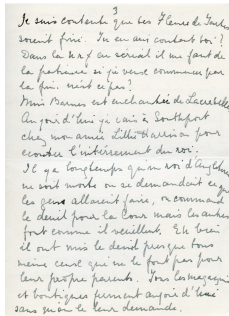 3
Je suis contente que tes Fleurs de Tarbes
soient fini. Tu en ais content toi?
Dans la nrf en serial il me faut de
la patience si je veux commencer par
la fin. n'est ce pas?
Miss Barnes est enchantée de Lacretelle
Aujourd'hui je vais à Southport
chez mon amie Harrison pour
ecouter l'enterrement du roi.
Il y a longtemps qu'un roi d'Angleterre
ne soit morte on se demandait ce que
les gens allaient faire, on commande
le deuil pour la Cour mais les autres
font comme il veuillent. Eh bien
il ont mis le deuil presque tous
meme ceux qui ne le font pas pour
leur propre parents. Tous les magasins
et boutiques ferment aujourd'hui
sans qu'on le leur demande.